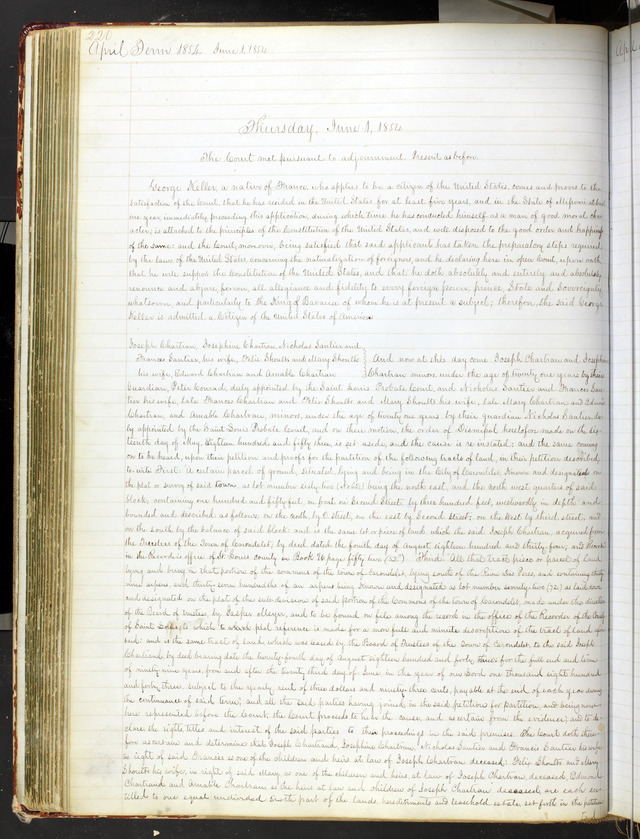 220
April Term 1854 June 1, 1854
Thursday, June 1, 1854
The Court met pursuant to adjournment. Present as before.
George Keller a native of France, who applies to be a citizen of the United States, comes and proves to the
satisfaction of the Court, that he has resided in the United States for at least five years, and in the State of Missouri at least
one year, immediately preceeding this application, during which time he has conducted himself as a man of good moral char
acter; is attached to the principles of the Constitution of the United States, and well disposed to the good order and happiness
of the same: and the Court, moreover, being satisfied that said applicant has taken the preparatory steps required
by the laws of the United States, concerning the naturalization of foreigners, and he declaring here in open Court, upon oath
that he will support the Constitution of the United States, and that he doth absolutely and entirely and absolutely
renounce and abjure, forever, all allegiance and fidelity to every foreign power, prince, State and Sovereignty
whatsoever, and particularly to the King of Bavaria of whom he is at present a subject; therefore, the said George
Keller is admitted a Citizen of the United States of America
Joseph Chartran, Josephine Chartran, Nicholas Santier and
Frances Santier, his wife, Felix Shoults and Mary Shoults
his wife, Edward Chartran and Amable Chartran
And now at this day come Joseph Chartran and Josephine
Chartran minors, under the age of twenty one years by their
Guardian, Peter Conrad, duly appointed by the Saint Louis Probate Court, and Nicholas Santier and Frances San
tier his wife, late Frances Chartran and Felix Shoults and Mary Shoults his wife, late Mary Chartran and Edward
Chartran, and Amable Chartran, minors, under the age of twenty one years by their guardian Nicholas Santier, du
ly appointed by the Saint Louis Probate Court, and on their motion, the order of Dismissal heretofore made on the
teenth day of May, Eighteen hundred and fifty three, is set aside, and the cause is re-instated: and the same coming
on to be heard, upon their petition and proofs for the partition of the following tracts of land, in their petition described,
to wit: First: A certain parcel of ground, situated, lying and being in the City of Carondelet, known and designated on
the plat or survey of said town as lot number sixty two being the north east, and the north west quarters of said
block, containing one hundred and fifty feet, in front on Second Street, by three hundred feet, westwardly in depth and
bounded and described as follows: on the north, by C street, on the east by Second Street; on the West by third street, and
on the south by the balance of said block and is the same lot or piece of land which the said Joseph Chartran, acquired from
the Trustees of the Town of Carondelet; by deed dated the fourth day of august eighteen hundred and thirty four, and Recorded
in the Recorder's office of St. Louis County in Book page fifty two (52) Third All that tract piece or parcel of land
lying and being in that portion of the commons of the town of Carondelet, lying south of the River Des Peres, and containing thirty
nine arpens, and thirty seven hundredths of an arpens being known and designated as lot number seventy two (72) as laid down
and designated on the plat of the subdivision of said portion of the Commons of the town of Carondelet, made under the direction
of the Board of trustees, by Jasper Meyer, and to be found on file among the records in the office of the Recorder of the County
of Saint Louis, to which plat reference is made for a more full and minute description of the tract of land afore
said: and is the same tract of land which was issued by the Board of Trustees of the Town of Carondelet to the said Joseph
Chartrand, by deed bearing date the twenty fourth day of august eighteen hundred and forty three for the full end and term
of ninety-nine years, from and after the twenty third day of June in the year of our Lord one thousand eight hundred
and forty three, subject to the yearly rent of three dollars and ninety-three cents, payable at the end of each year during
the continuance of said term; and all the said parties having joined in the said petition for partition, and being now
here represented before the Court, the Court proceeds to hear the cause, and ascertain from the evidence; and to de
clare the rights titles and interest of the said parties to these proceedings in the said premises. The Court doth there
fore ascertain and determine that Joseph Chartrand, Josephine Chartran, Nicholas Santier and Francis Santier his wife
in right of said Frances is one of the children and heirs at law of Joseph Chartran deceased; Felix Shoults and Mary
Shoults his wife, in right of said Mary, as one of the children and heirs, at law of Joseph Chartran, deceased, Edward
Chartrand and Amable Chartran is the heirs at law and children of Joseph Chartran deceased, are each en
titled to one equal undivided sixth part of the lands, hereditaments and leasehold estate, set forth in the petition